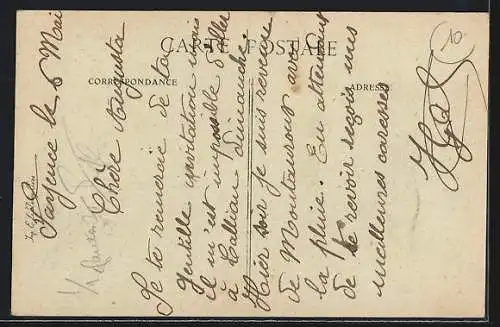 CARTE POSTALE
CORRESPONDANCE
ADRESSE
Fayence le 6 Mai
Chère Augusta
Je te remercie de ta
gentille invitation mais
il m'est impossible d'aller
à Callian Dimanche.
Hier soir je suis revenue
de Montauroux avec
la pluie. En attendant
de te revoir reçois mes
meilleures caresses
10